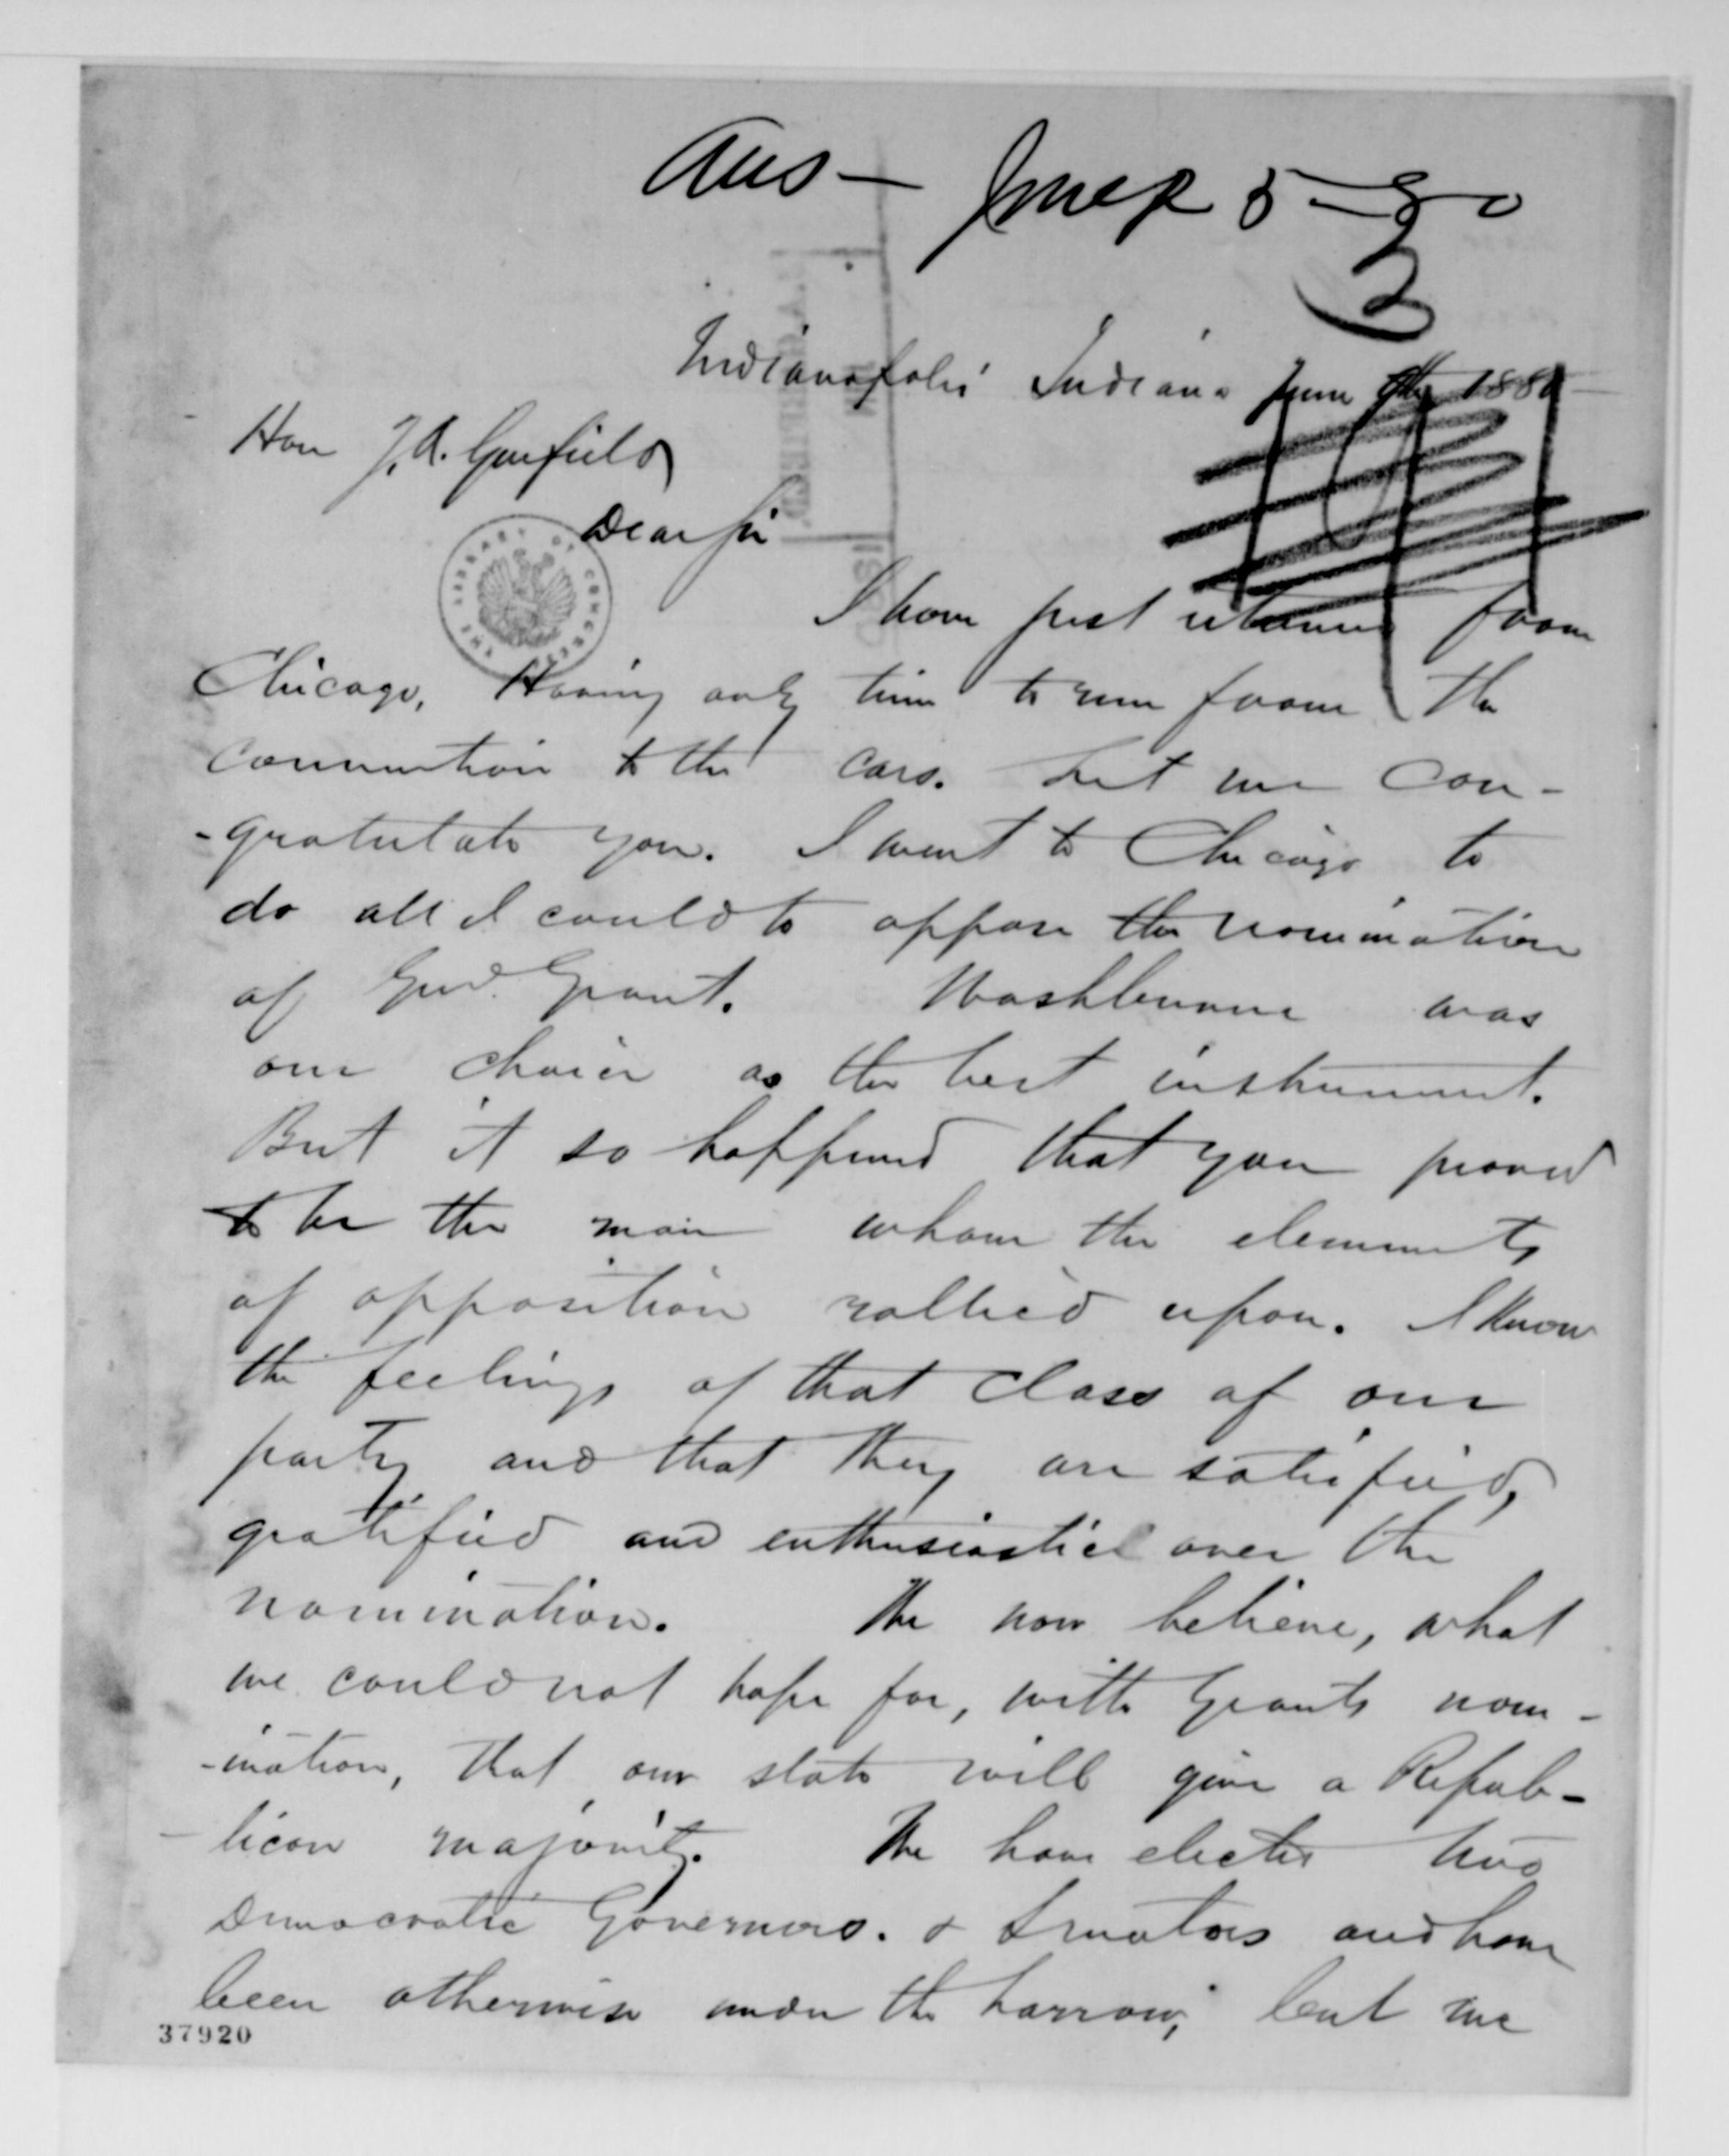 Ans —
5 — 80
3
Indianapolis Indiana June 9th 1880
Hon J. A. Garfield
Dear Sir
THE LIBRARY OF CONGRESS
I have just returned from
Chicago, Having only time to run from the
convention to the cars. Let me con-
-gratulate you. I went to Chicago to
do all I could to oppose the nomination
of Genl. Grant. Washburne was
our choice as the best instrument.
But it so happened that you proved
to be the man whom the elements
of opposition rallied upon. I know
the feelings of that class of our
party and that they are satisfied,
gratified and enthusiastic over the
nomination. We now believe, what
we could not hope for, with Grants nom-
-ination, that our state will give a Repub-
-lican majority. We have elected two
Democratic Governors. & Senators and have
been otherwise under the harrow, but we
37920